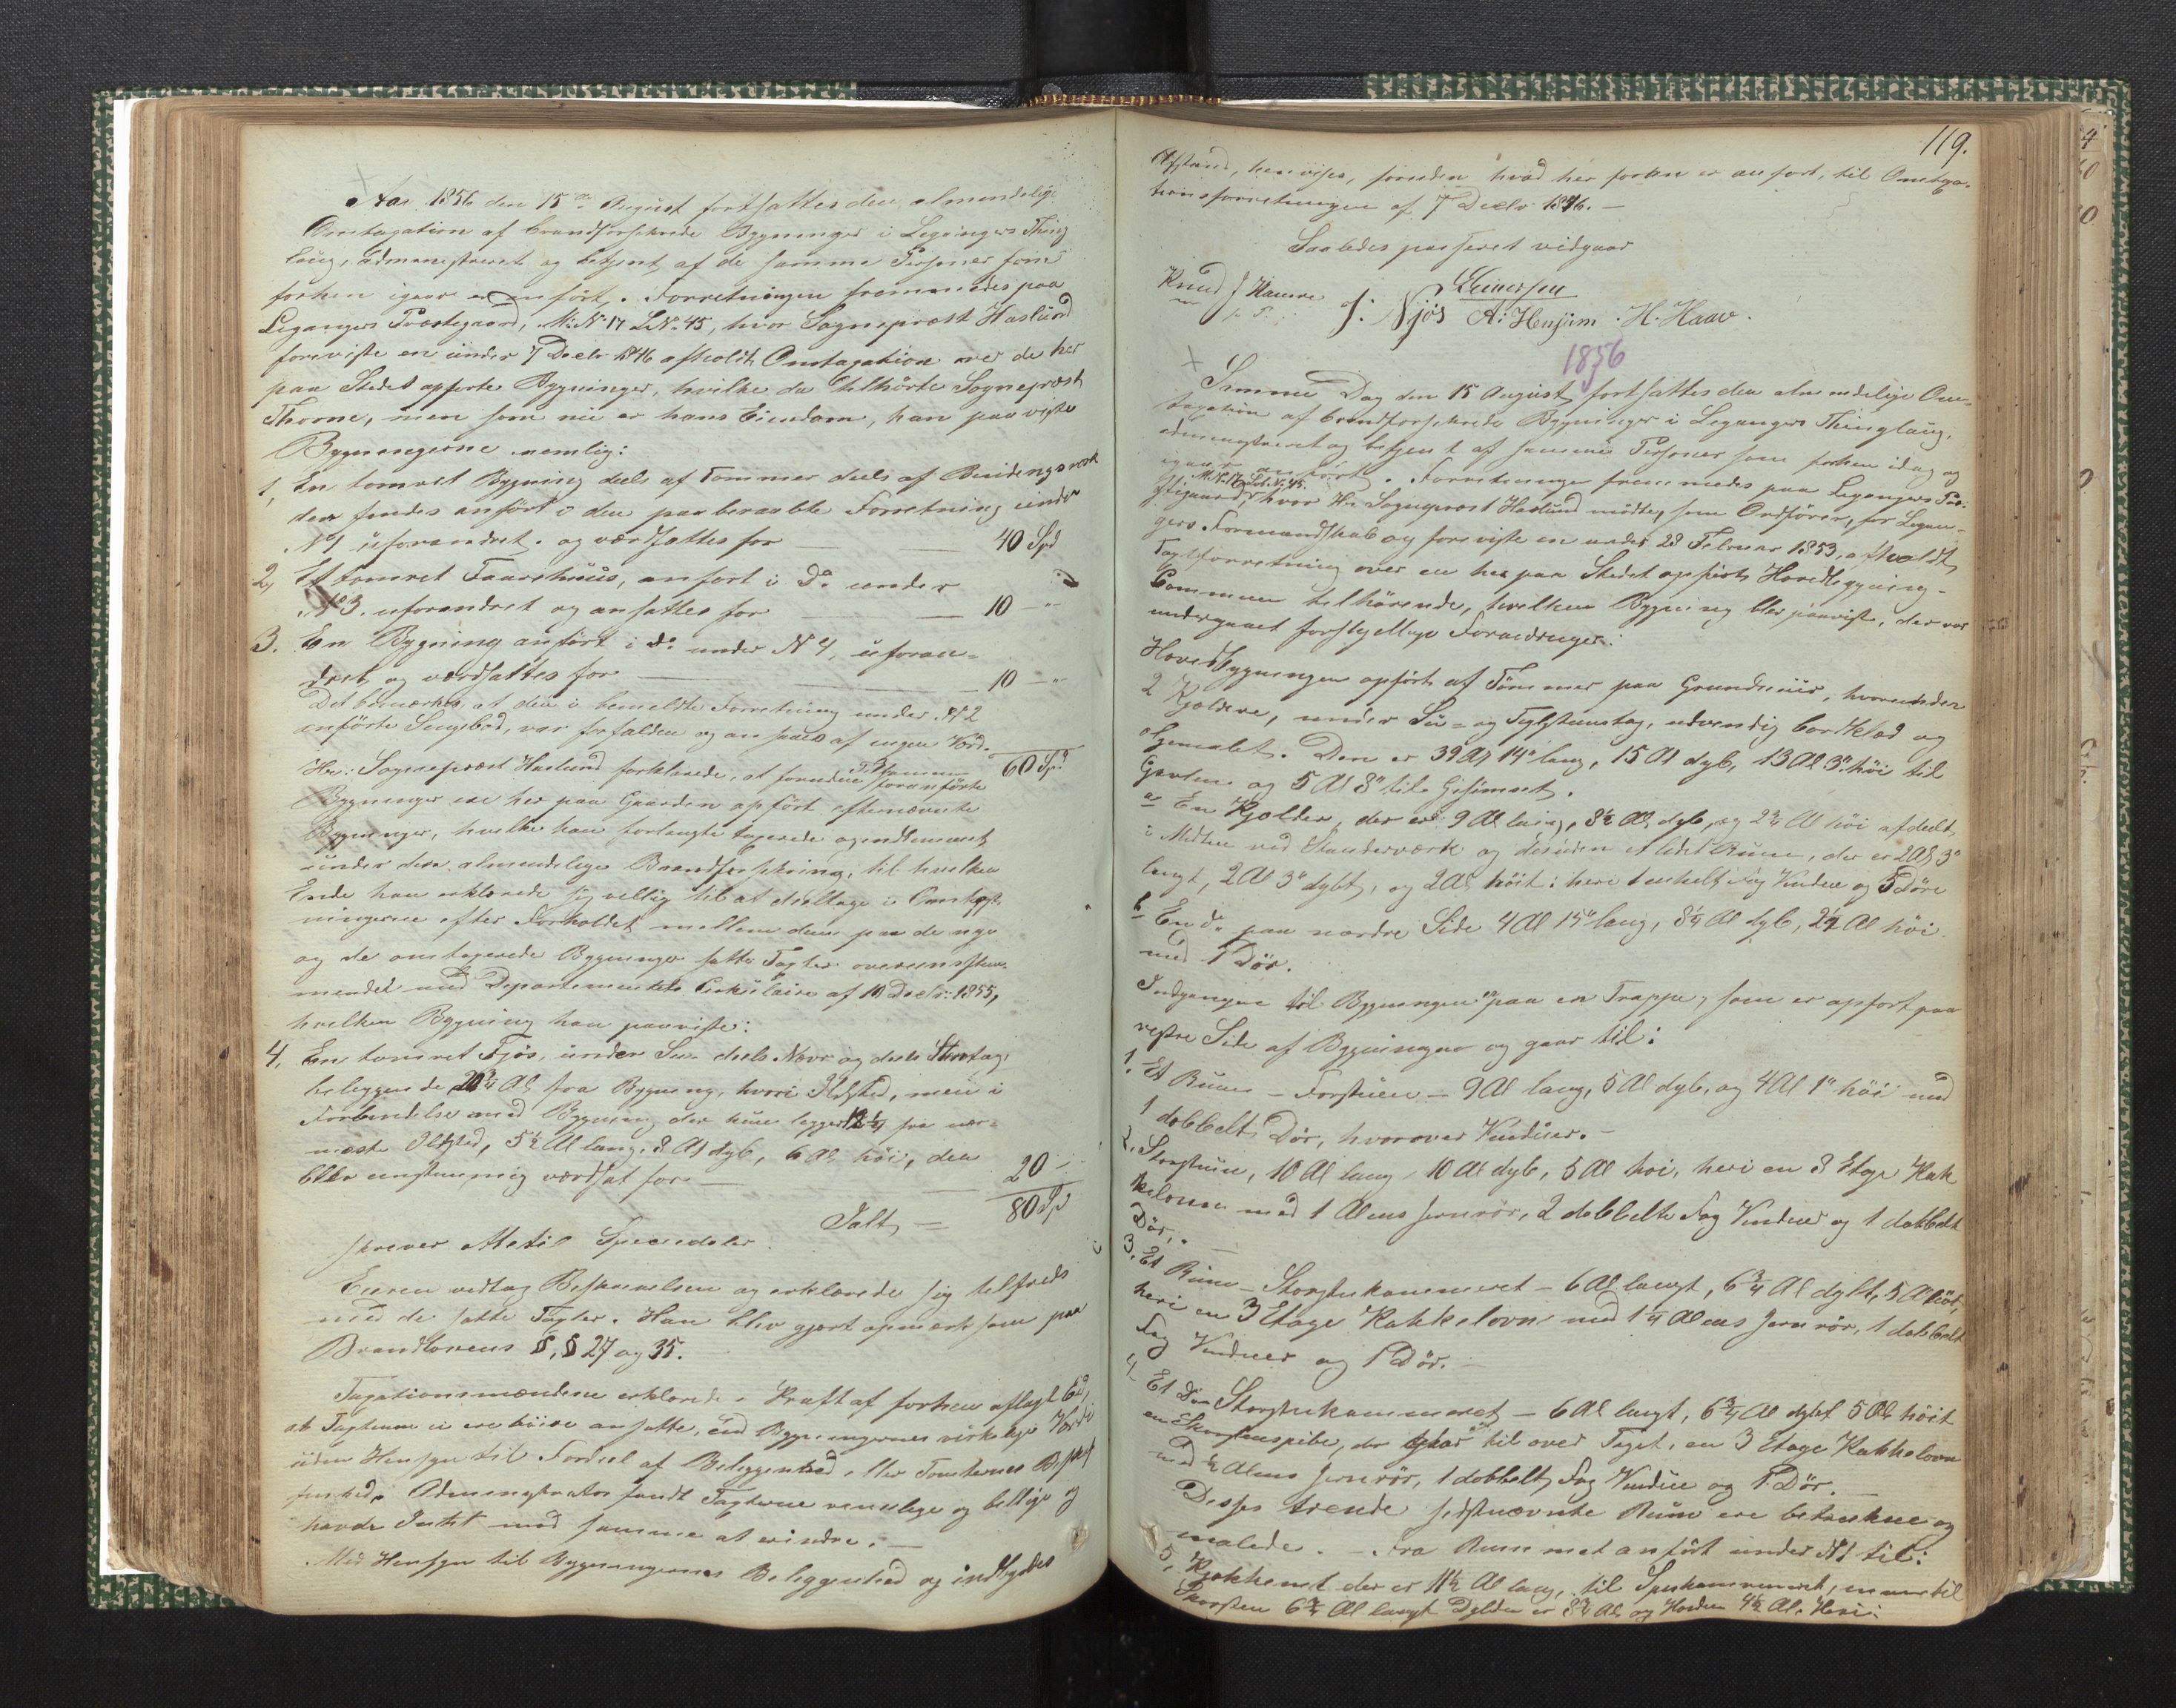 Aar 1856 den 15de August fortsattes den almindelige
Omtaxation af brandforsikrede Bygninger i Leganger Thing
laug, administreret og betjent af de samme Personer som
forhen igaar er anført. Forretningen fremmedes paa
Legangers Præstegaard, M: N. 17 L. N. 45, hvor Sognepræst Haslund
foreviste en under 7 Decbr 1846 afholdt Omtaxation over de her
paa Stedet opførte Bygninger, hvilke da tilhørte Sognepræst
Thorne, men som nu er hans Eiendom, han paaviste
Bygningerne nemlig:
1, En tømret Bygning deels af Tømmer deels af Bindingsværk
der findes anført i den paaberaabte Forretning under
N 1 uforandret og værdsattes for 40 Spd
2, Et tømret Taarehuus, anført i Do under
No 3. uforandret og ansattes for 10 - "
3. En Bygning anført i do under N 4, uforan-
dret og værdsattes for 10 - "
Det bemærkes, at den i bemeldte Forretning under N 2
anførte Sengebod, var forfalden og ansaaes af ingen Værd.
Tilsammen 60 Spd
Hr: Sognepræst Haslund forklarede, at foruden foranførte
Bygninger ere her paa Gaarden opført efternævnte
Bygninger, hvilke han forlangte taxerede og indlemmet
under den almindelige Brandforsikring, til hvilken
Ende han erklærede sig villig til at deeltage i Omkost-
ningerne efter Forholdet mellem den paa de nye
og de omtaxerede Bygninger satte Taxter overeensstem-
mende med Departementets Cirkulaire af 10 Decbr: 1855,
hvilken Bygning han paaviste:
4. En tømret Fjøs, under Su- deels Næver og deels Straatag,
beliggende 20¾ Al fra Bygning, hvori Ildsted, men i
Forbindelse med Bygning der kun ligger 12½ fra nær-
meste Ildsted, 5½ Al lang, 8 Al dyb, 6 Al høi, den
blev eenstemmig værdsat for 20 -
Ialt 80 Spd
skriver Otteti Speciedaler.
Eieren vedtog Beskrivelsen og erklærede sig tilfreds
med de satte Taxter. Han blev gjort opmærksom paa
Brandlovens §, § 27 og 35.
Taxationsmændene erklærede i Kraft af forhen aflagt Eed,
at Taxterne ei ere høiere ansatte, end Bygningernes virkelige Værdi
uden Hensyn til Fordeel af Beliggenhed eller Tomternes Beskaf
fenhed. Administrator fandt Taxterne rimelige og billige og
havde Intet mod samme at erindre. -
Med Hensyn til Bygningernes Beliggenhed og indbyrdes
119.
Afstand, henvises, foruden hvad her foran er anført, til Omtaxa-
tionsforretningen af 7 Decbr 1846. -
Saaledes passeret vidner
Knud J Hamre
m. f. P.
J: Njøs A: Henjum. H. Haav.
1856
Samme Dag den 15 August fortsattes den almindelige Om-
taxation af brandforsikrede Bygninger i Legangers Thinglaug,
administreret og betjent af samme Personer som forhen idag og
igaar anført. Forretningen fremmedes paa Legangers Præ-
stegaard, M. N. 17 L. N. 45. hvor Hr Sognepræst Haslund mødte, som Ordfører, for Legan-
gers Formandskab og foreviste en under 28 Februar 1853, afholdt
Taxtforretning over en her paa Stedet opført Hovedbygning -
Communen tilhørende, hvilken Bygning blev paavist, der var
undergaaet forskjellige Forandringer:
Hovedbygningen opført af Tømmer paa Grundmuur, hvorunder
2 Kjældere, under Su- og Teglsteenstag, udvendig bordklæd og
oljemalet. Den er 39 Al 14" lang, 15 Al dyb, 13 Al 3" høi til
Gavlene og 5 Al 8" til Gesimset.
a En Kjælder, der er 9 Al lang, 8½ Al dyb, og 2¾ Al høi afdeelt
i Midten ved Standerværk og desuden et lidet Rum, der er 2 Al 3"
langt, 2 Al 3" dybt, og 2 Al høit: heri 1 enkelt Fag Vindue og 5 Døre
b En do paa nordre Side 4 Al 15" lang, 8¼ Al dyb, 2¼ Al høi
med 1 Dør.
Indgangen til Bygningen er paa en Trappe, som er opført paa
vestre Side af Bygningen og gaar til:
1. Et Rum - Forstuen - 9 Al lang, 5 Al dyb, og 4 Al 1" høi med
1 dobbelt Dør, hvorover Vinduer. -
2. Storstue, 10 Al lang, 10 Al dyb, 5 Al høi, heri en 3 Etage Kak
kelovn med 1 Alens Jernrør, 2 dobbelte Fag Vinduer og 1 dobbelt
Dør. -
3. Et Rum - Storstukammeret - 6 Al langt, 6¾ Al dybt, 5 Al høit,
heri en 3 Etage Kakkelovn med 1¼ Alens Jernrør, 1 dobbelt
Fag Vinduer og 1 Dør. -
4. Et Do Storstukammeret - 6 Al langt, 6¾ Al dybt 5 Al høit
en Skorsteenspibe, der gaar til over Taget, en 3 Etage Kakkelovn
med ½ Alens Jernrør, 1 dobbelt Fag Vindue og 1 Dør.
Disse trende sidstnævnte Rum ere betrukne og
malede. - Fra Rummet anført under N 1 til:
5, Kjøkkenet der er 11½ Al lang, til Spiskammeret, men til
Skorsten 6¾ Al langt Dybden er 8¾ Al og Høiden 4½ Al. Heri: